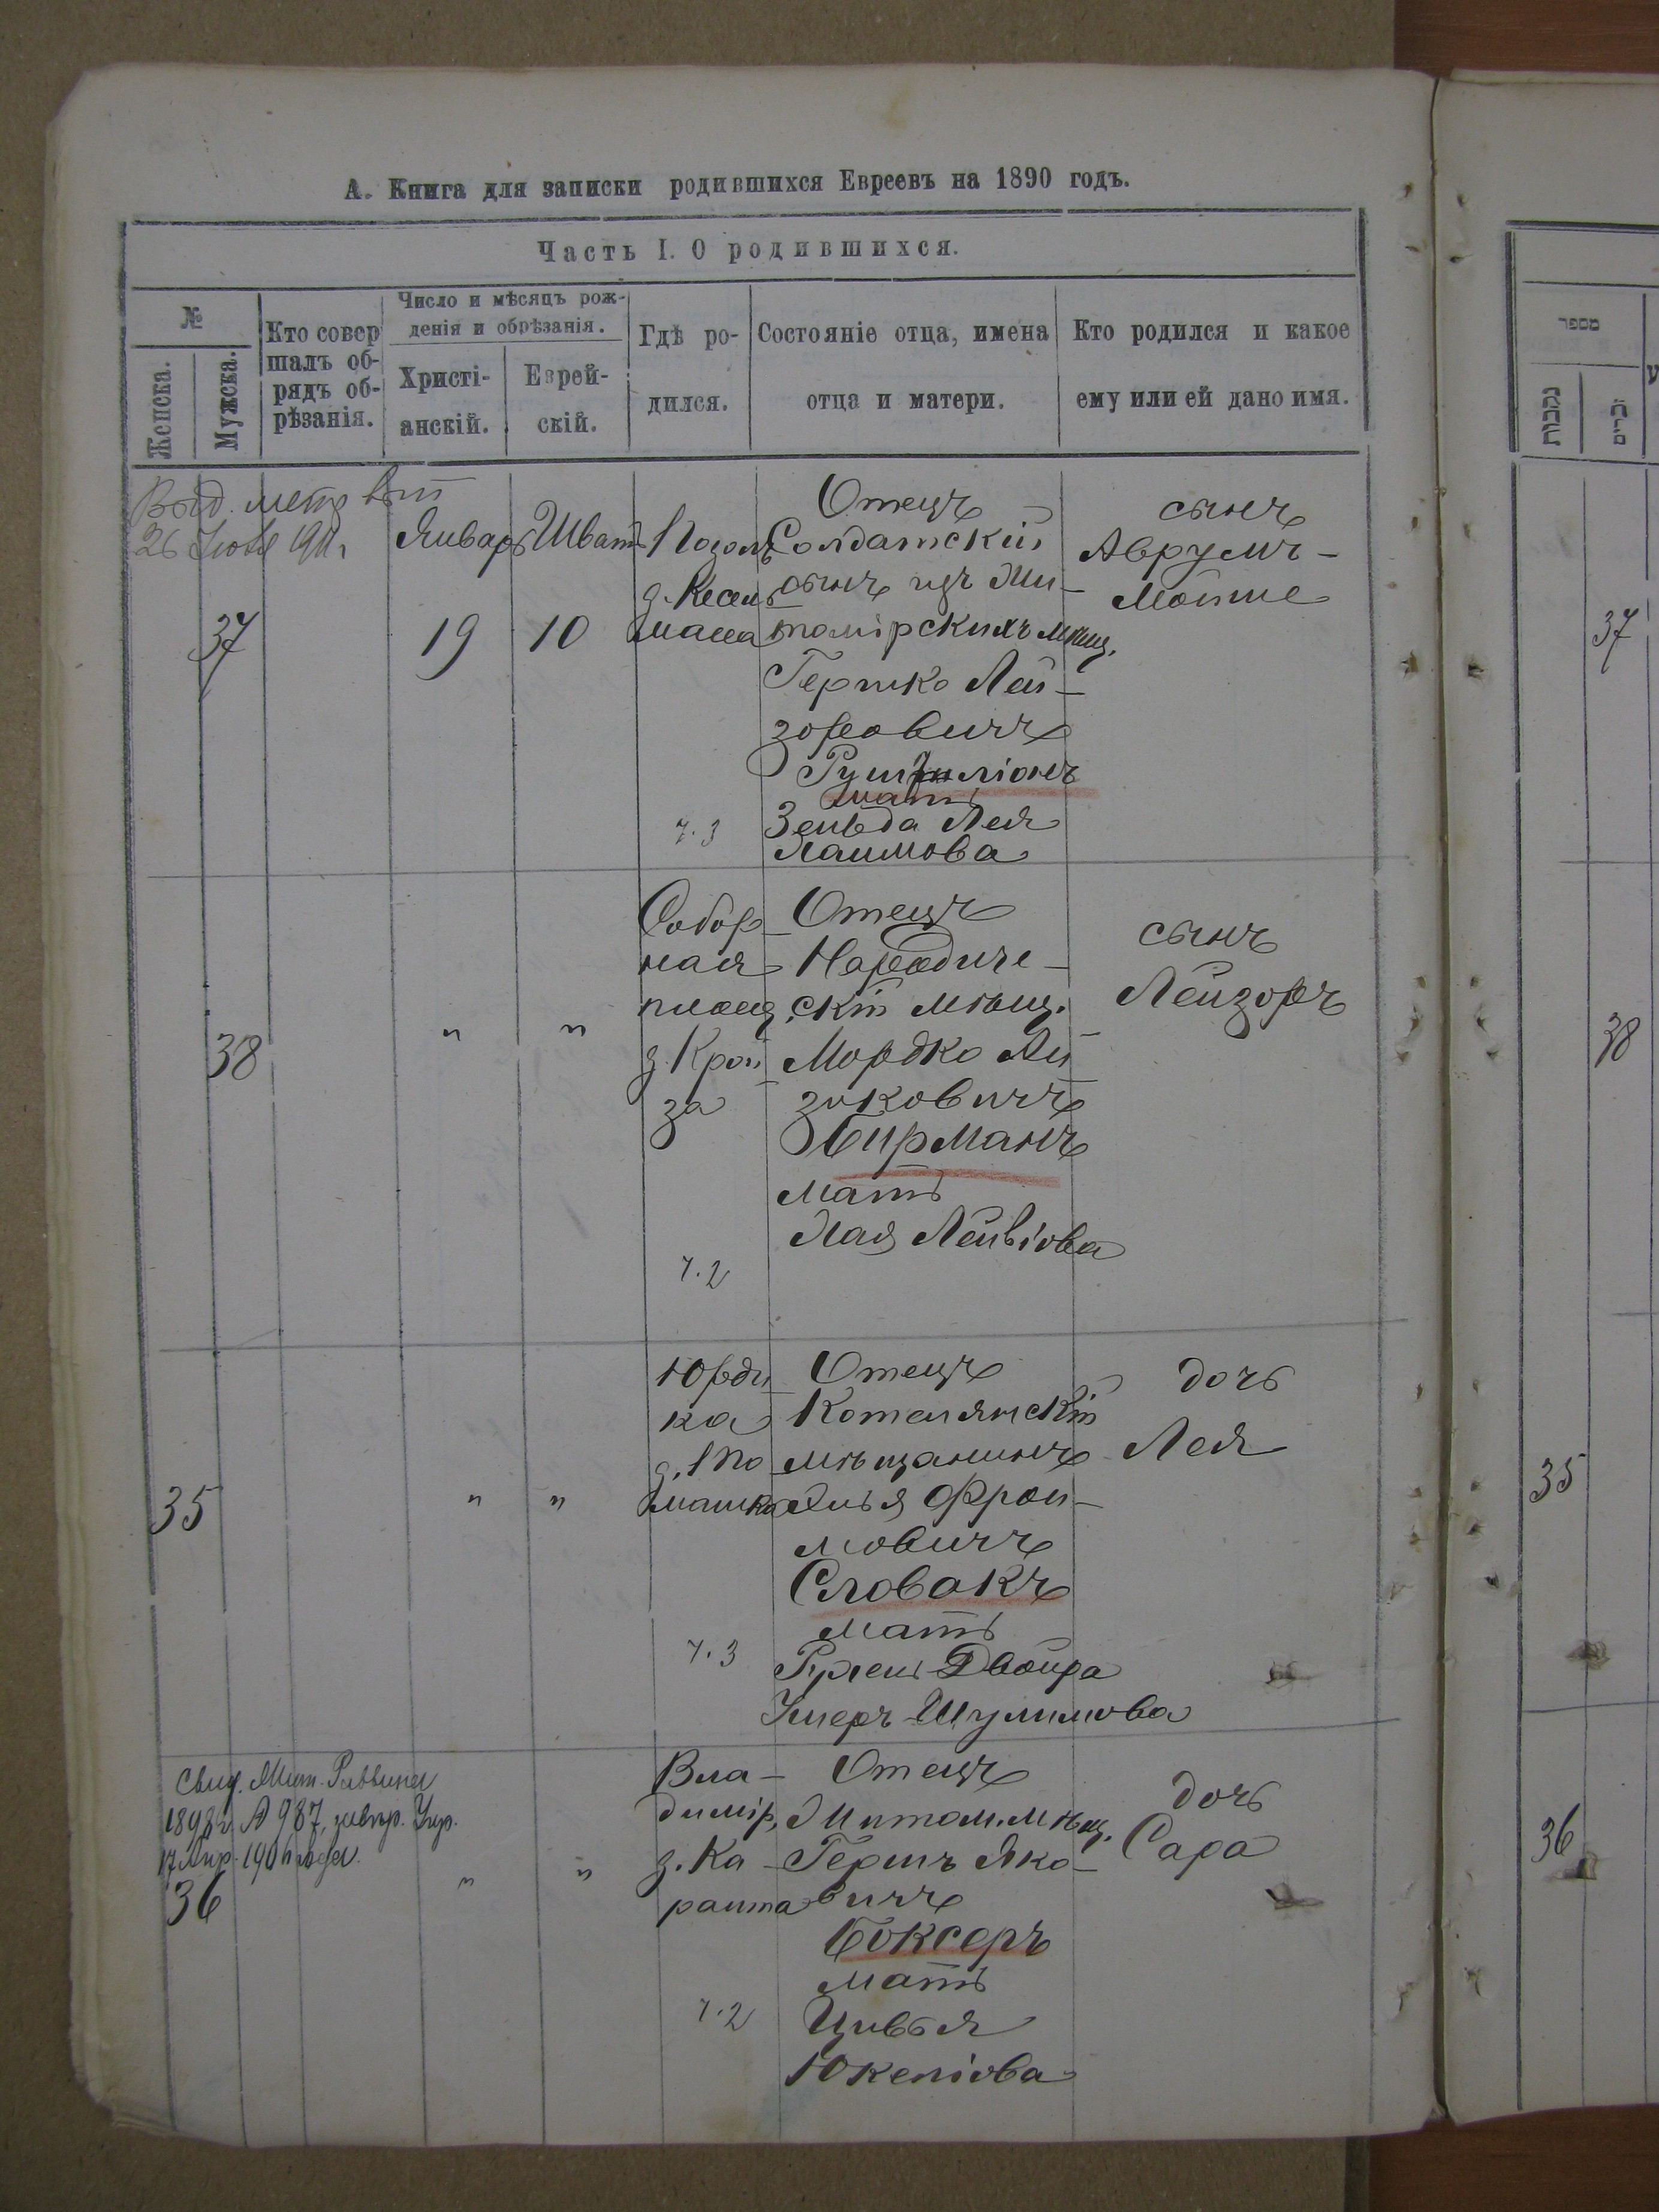 А. Книга для записки родившихся Евреевъ на 1890 годъ.
Часть I. О родившихся.
№
Женска.
Мужска.
Кто совер
шалъ об-
рядъ об-
рѣзанія.
Число и мѣсяцъ рож-
денія и обрѣзанія.
Христі-
анскій.
Еврей-
скій.
Гдѣ ро-
дился.
Состояніе отца, имена
отца и матери.
Кто родился и какое
ему или ей дано имя.
Выд. метр. вып
26 1911
37
Январь
19
Шватъ
10
д. Кесель
мана
ч. 3
Отецъ
Солдатскій
сынъ изъ Жи-
томірскихъ мѣщ.
Гершко Лей-
зоровичъ
мать
Зельда Лея
Хаимова
сынъ
Аврумъ-
Мойше
38
"
"
Собор-
ная
площ.
д. Крой
за
ч. 2
Отецъ
Народиче-
скій мѣщ.
Мордко Ай
зиковичъ
Бирманъ
мать
Хая Лейвіова
сынъ
Лейзоръ
35
"
"
Юрди
ка
д. То
машка
ч. 3
Отецъ
Котелянскій
мѣщанинъ
Эля Фрои-
мовичъ
Словакъ
мать
Двойра
Шулимова
дочь
Лея
Свид. Жит. Раввина
1898 г. № 987,
17 Апр. 190 года
36
"
"
Вла-
димір.
д. Ка-
раита
ч. 2
Отецъ
Житом. мѣщ.
Гершъ Яко-
вичъ
Боксеръ
мать
Цивья
Юкеліова
дочь
Сара
מספר
נקבות
זכרים
37
38
35
36